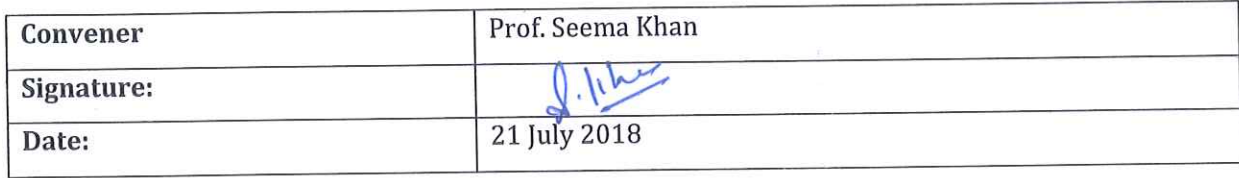 Convener Prof. Seema Khan
Signature:
Date: 21 July 2018